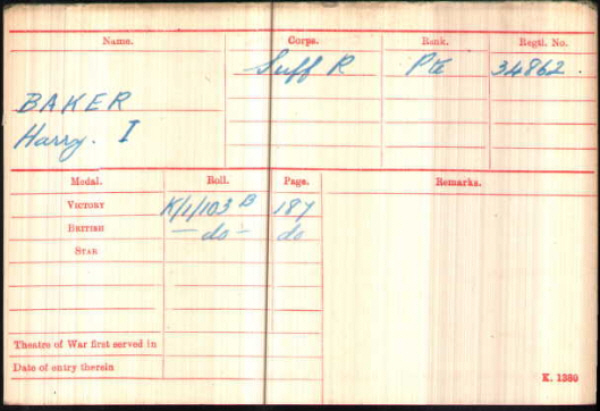 Name. Corps. Rank. Regtl. No.
Suff R Pte 34862.
BAKER
Harry. I
Medal. Roll. Page. Remarks.
VICTORY K/1/103 B 187
BRITISH — do — do
STAR
Theatre of War first served in
Date of entry therein
K. 1380